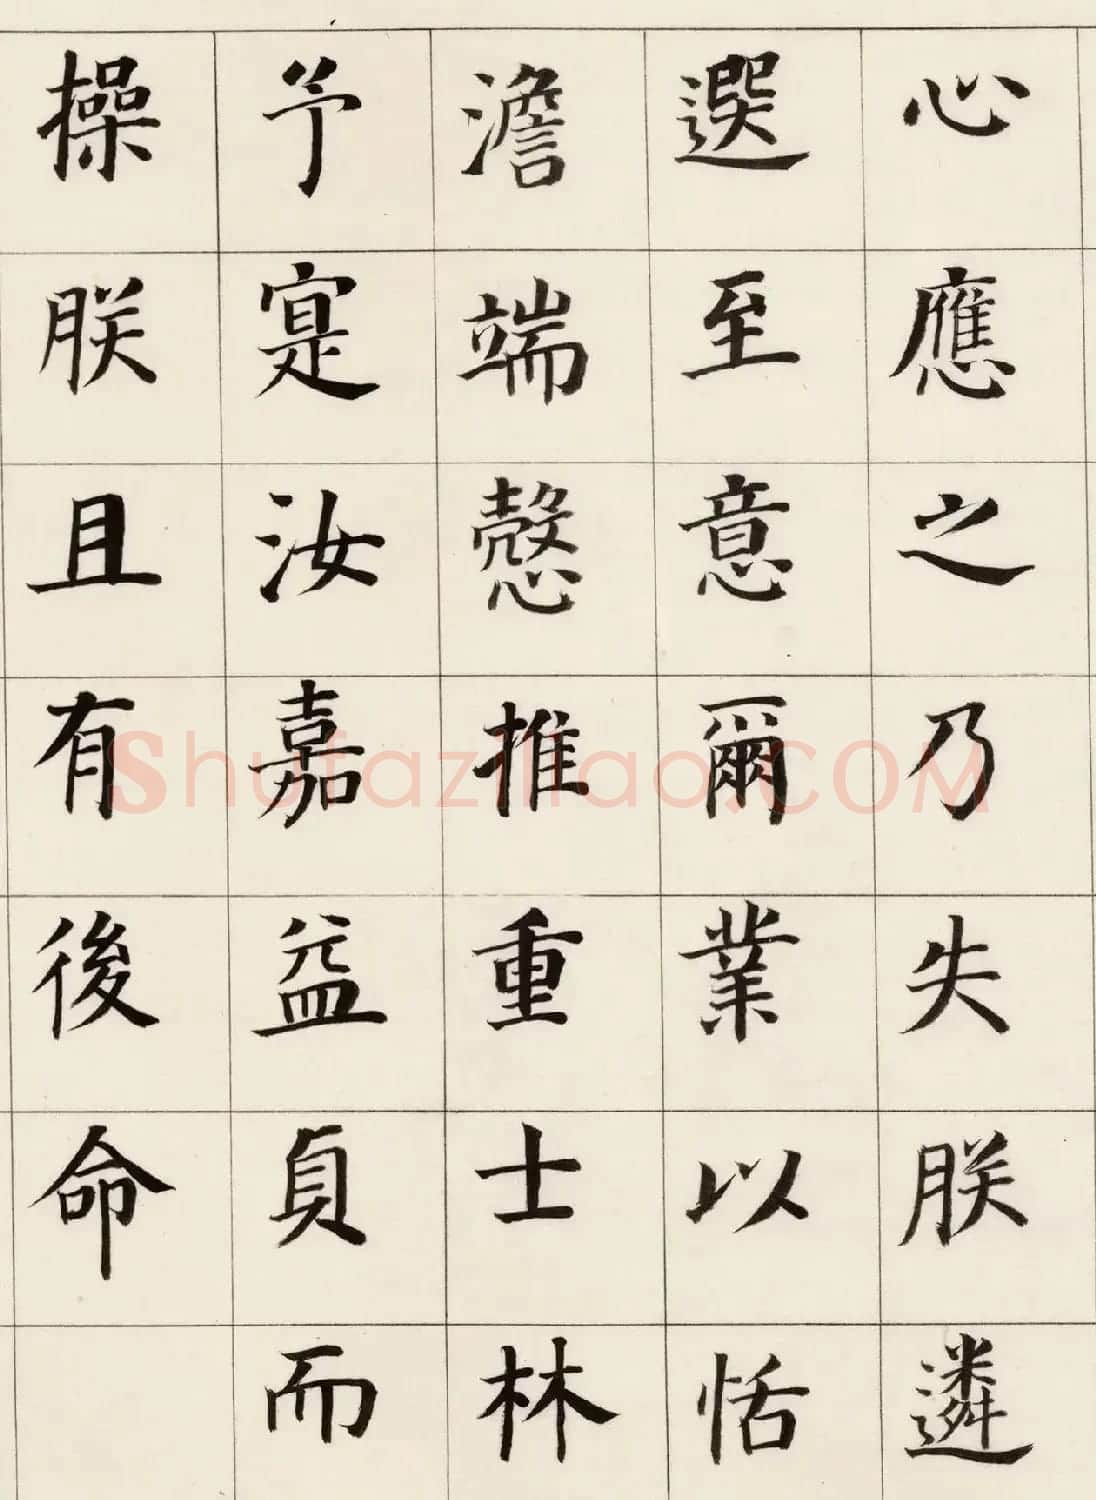 心應之乃失朕遴
選至意爾業以恬
澹端慤推重士林
予寔汝嘉益貞而
操朕且有後命
Shufaziliao.COM